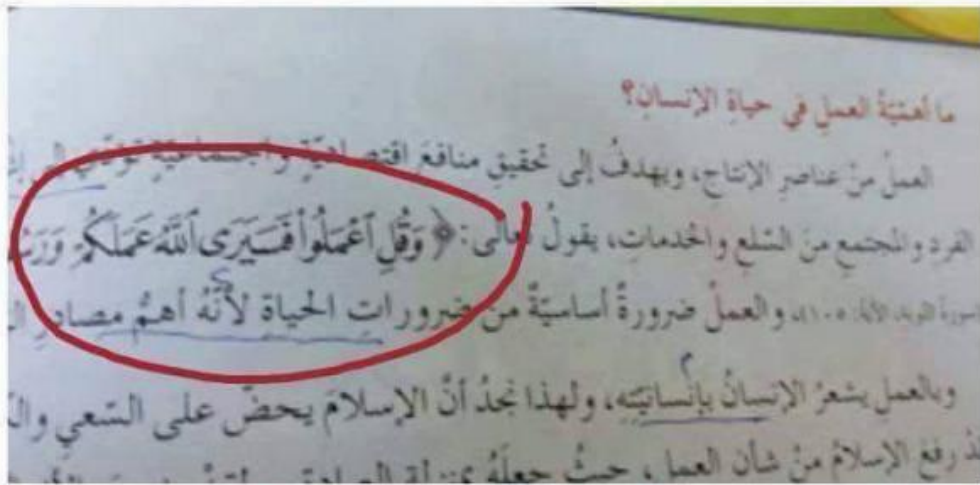 ما أهميّةُ العملِ في حياةِ الإنسانِ؟
العملُ منْ عناصرِ الإنتاجِ، ويهدفُ إلى تحقيقِ منافعَ اقتصاديّةٍ واجتماعيّةٍ تؤدّي إلى
الفردِ والمجتمعِ منَ السّلعِ والخدماتِ، يقولُ تعالى: ﴿وَقُلِ ٱعْمَلُوا۟ فَسَيَرَى ٱللَّهُ عَمَلَكُمْ
سورة التوبة، الآية: ١٠٥)، والعملُ ضرورةٌ أساسيّةٌ منْ ضروراتِ الحياةِ لأنّهُ أهمُّ مصادرِ
وبالعملِ يشعرُ الإنسانُ بإنسانيّتِه، ولهذا نجدُ أنّ الإسلامَ يحضّ على السّعي
رفعَ الإسلامُ منْ شأنِ العملِ، حيثُ جعلَهُ بمنزلةِ